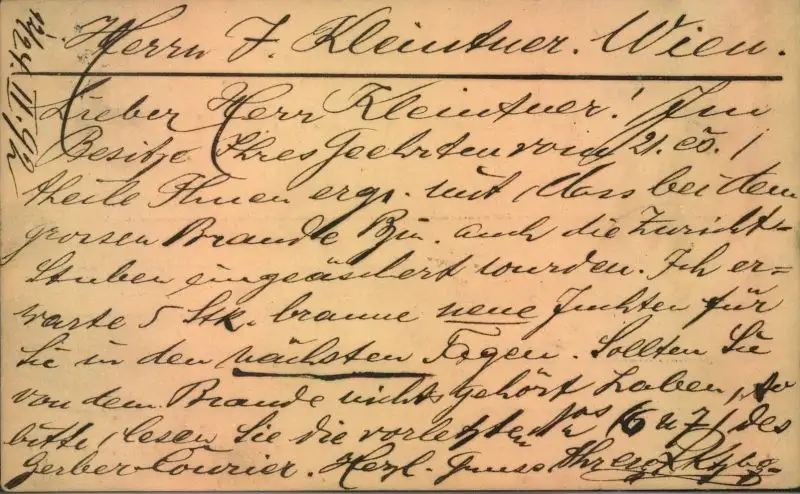 Herrn J. Kleintner. Wien.
Lieber Herr Kleintner! Im
Besitze Ihres Geehrten vom 21. co. /
theile Ihnen erg. mit, dass bei dem
grossen Brande auch die Zuricht-
Stuben eingeäschert wurden. Ich er=
warte 5 Stk. braune neue Juchten für
Sie in den nächsten Tagen. Sollten Sie
von dem Brande nichts gehört haben, so
bitte, lesen Sie die vorletzten Nos (6 u 7) des
Gerber-Courier. Herzl. Gruss Ihres